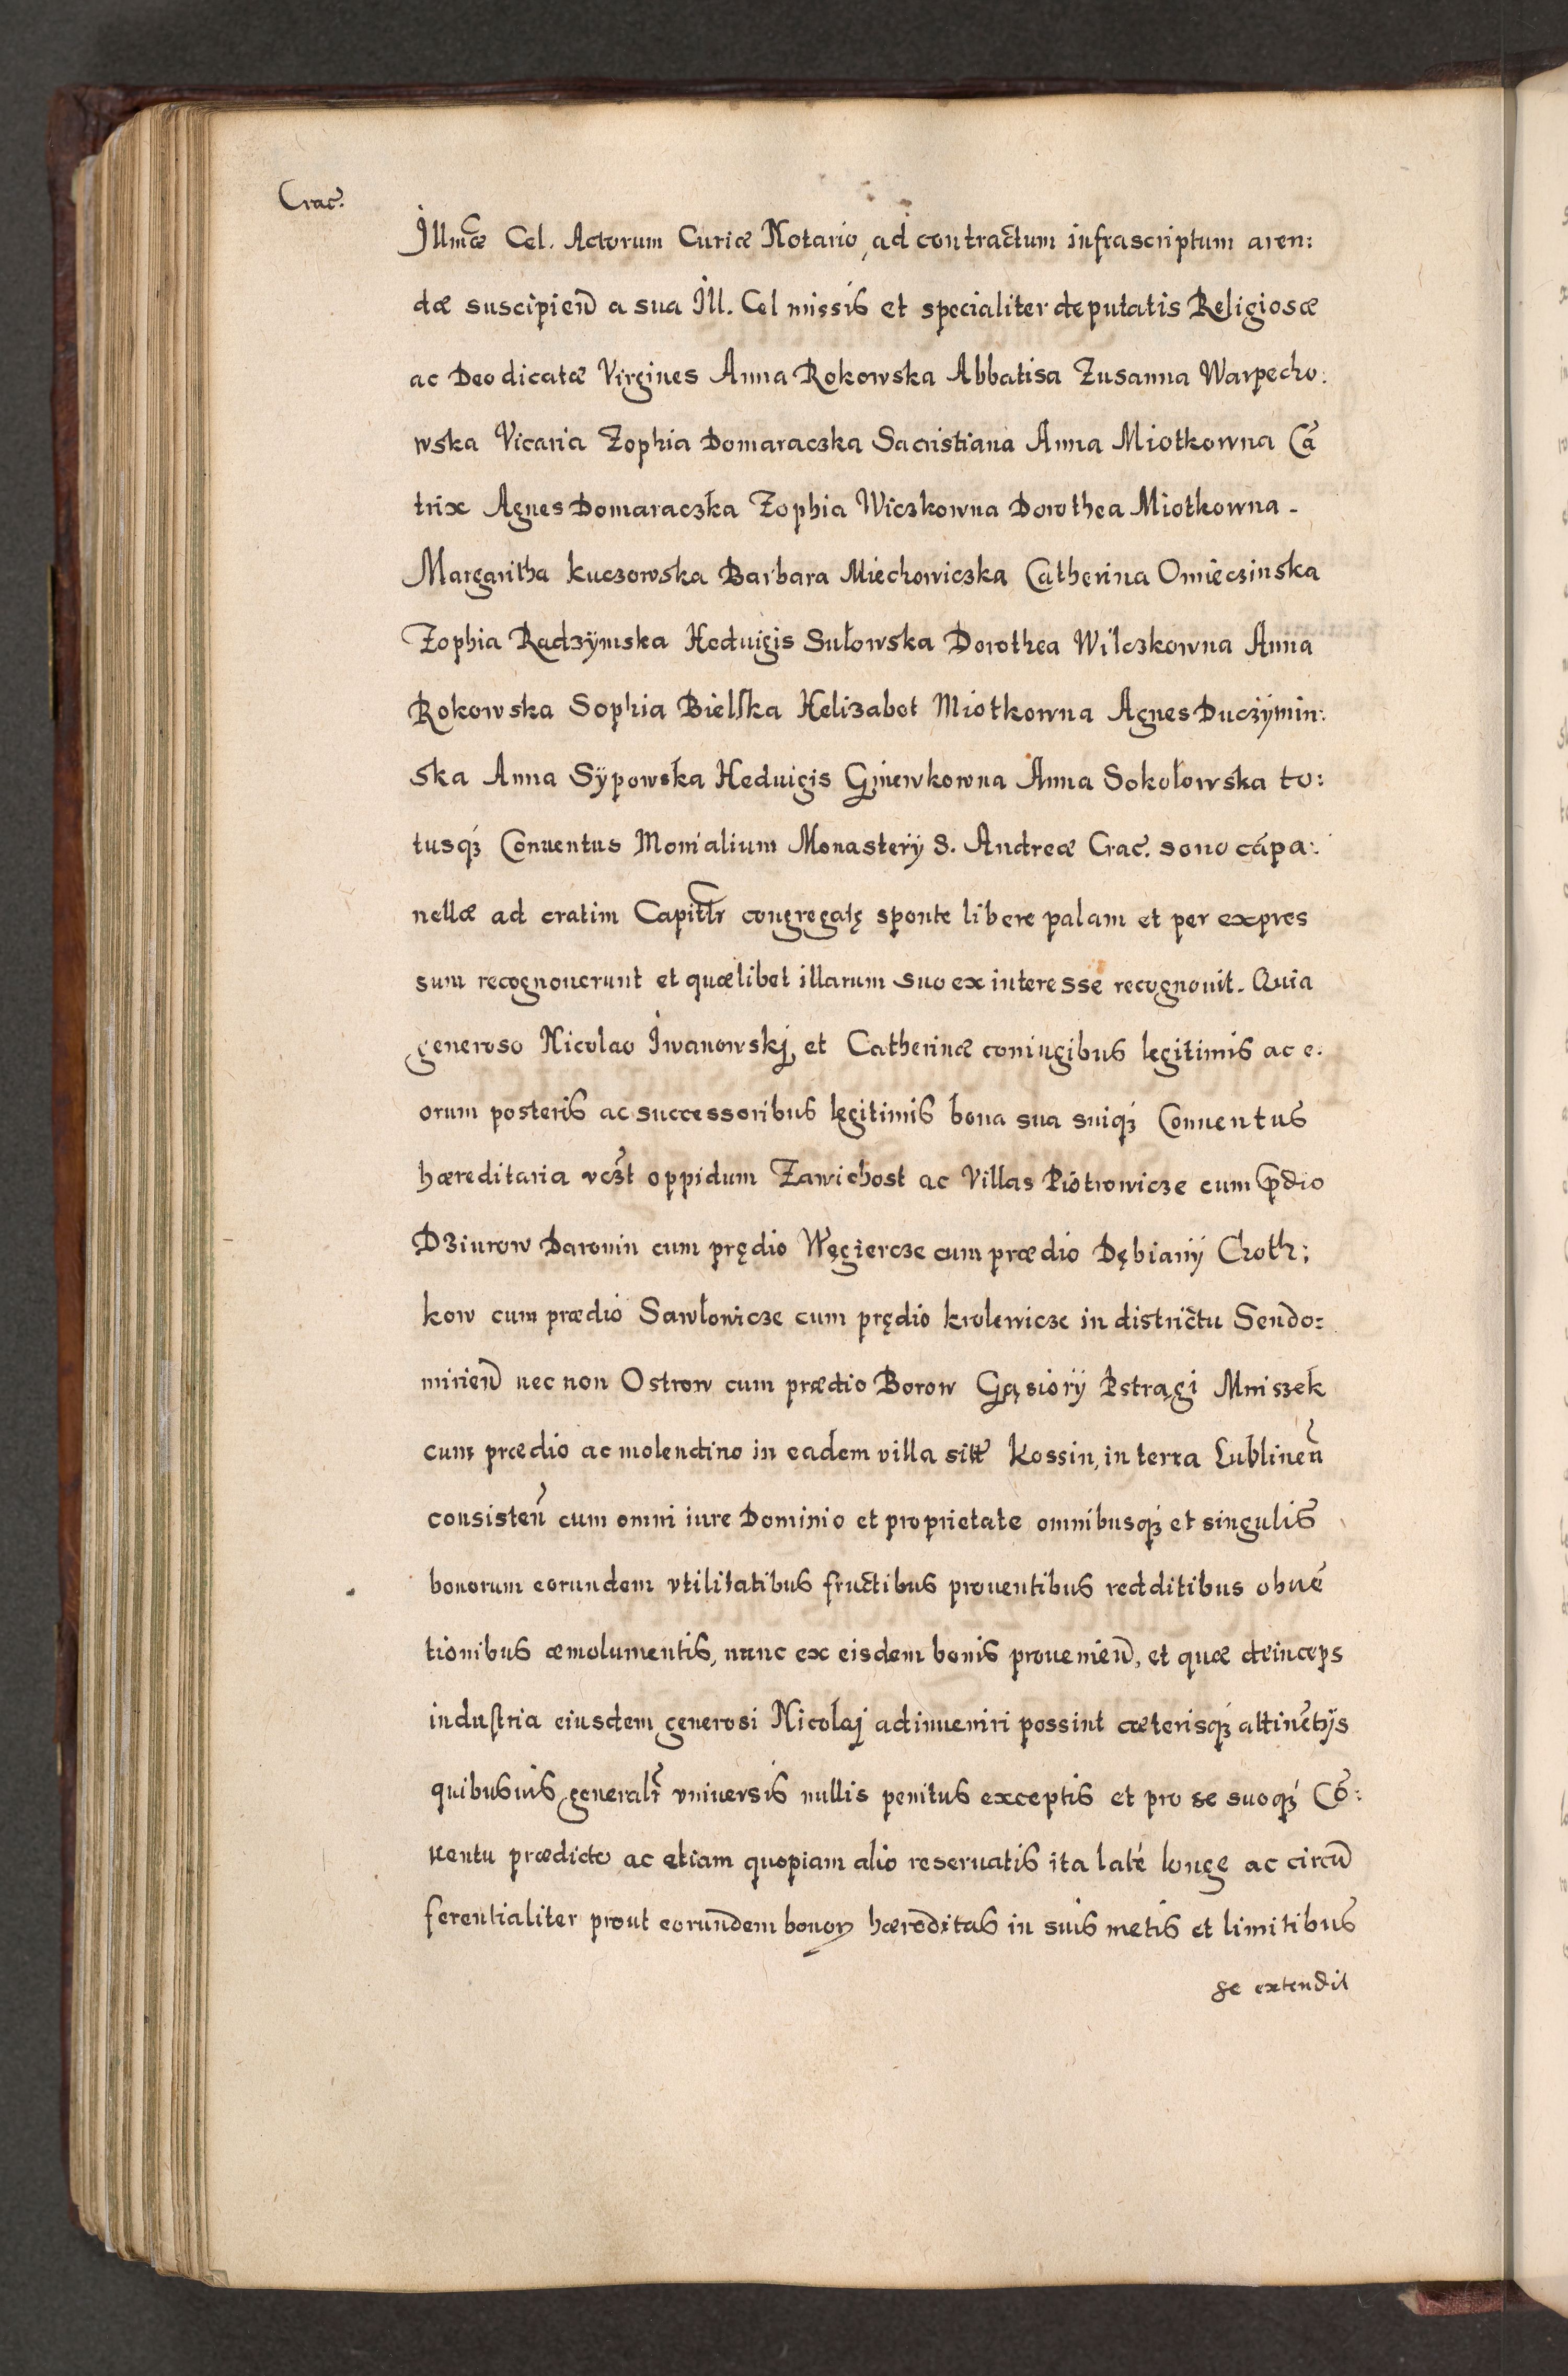 Crac̃.
Jllm̃æ Cel. Actorum Curiæ Notario, ad contractum infrascriptum aren:
dæ suscipieñ a sua Ill. Cel missis et specialiter deputatis Religiosæ
ac Deo dicatæ Virgines Anna Rokowska Abbatisa Zusanna Warpecho:
wska Vicaria Zophia Domaraczka Sacristiana Anna Miotkowna Cã
trix Agnes Domaraczka Zophia Wiczkowna Dorothea Miotkowna -
Margaritha kuczowska Barbara Miechowiczka Catherina Omieczinska
Zophia Radzÿmska Heduigis Sułowska Dorothea Wilczkowna Anna
Rokowska Sophia Bielska Helizabet Miotkowna Agnes Duczÿmin:
ska Anna Sÿpowska Heduigis Gniewkowna Anna Sokołowska to:
tusqꝫ Conuentus Monialium Monasterÿ S. Andreæ Crac̃. sono cãpa:
nellæ ad cratim Capitlr̃ congregatę sponte libere palam et per expres
sum recognouerunt et quælibet illarum suo ex interesse recognouit. Quia
generoso Nicolao Iwanowskj, et Catherinæ coniugibus legitimis ac e.
orum posteris ac successoribus legitimis bona sua suiqꝫ Conuentus
hæreditaria vcꝫt oppidum Zawichost ac Villas Piotrowicze cum p̃dio
Dziurow Daromin cum prędio Węgiercze cum prædio Dębianÿ Choth;
kow cum prædio Sawłowicze cum prędio krolewicze in districtu Sendo:
mirieñ nec non Ostrow cum prædio Borow Gąsiorÿ Pstrągi Mniszek
cum prædio ac molendino in eadem villa sitt̃ Kossin, in terra Lublineñ
consisteñ cum omni iure Dominio et proprietate omnibusqꝫ et singulis
bonorum eorundem vtilitatibus fructibus prouentibus redditibus obuẽ
tionibus æmolumentis, nunc ex eisdem bonis prouenieñ, et quæ deinceps
industria eiusdem generosi Nicolaj adinueniri possint cæterisqꝫ attinẽtijs
quibusuis generalr̃ vniuersis nullis penitus exceptis et pro se suoqꝫ Cõ:
uentu prædicto ac etiam quopiam alio reseruatis ita laté longe ac circũ
ferentialiter prout eorundem bonoꝝ hæreditas in suis metis et limitibus
se extendit